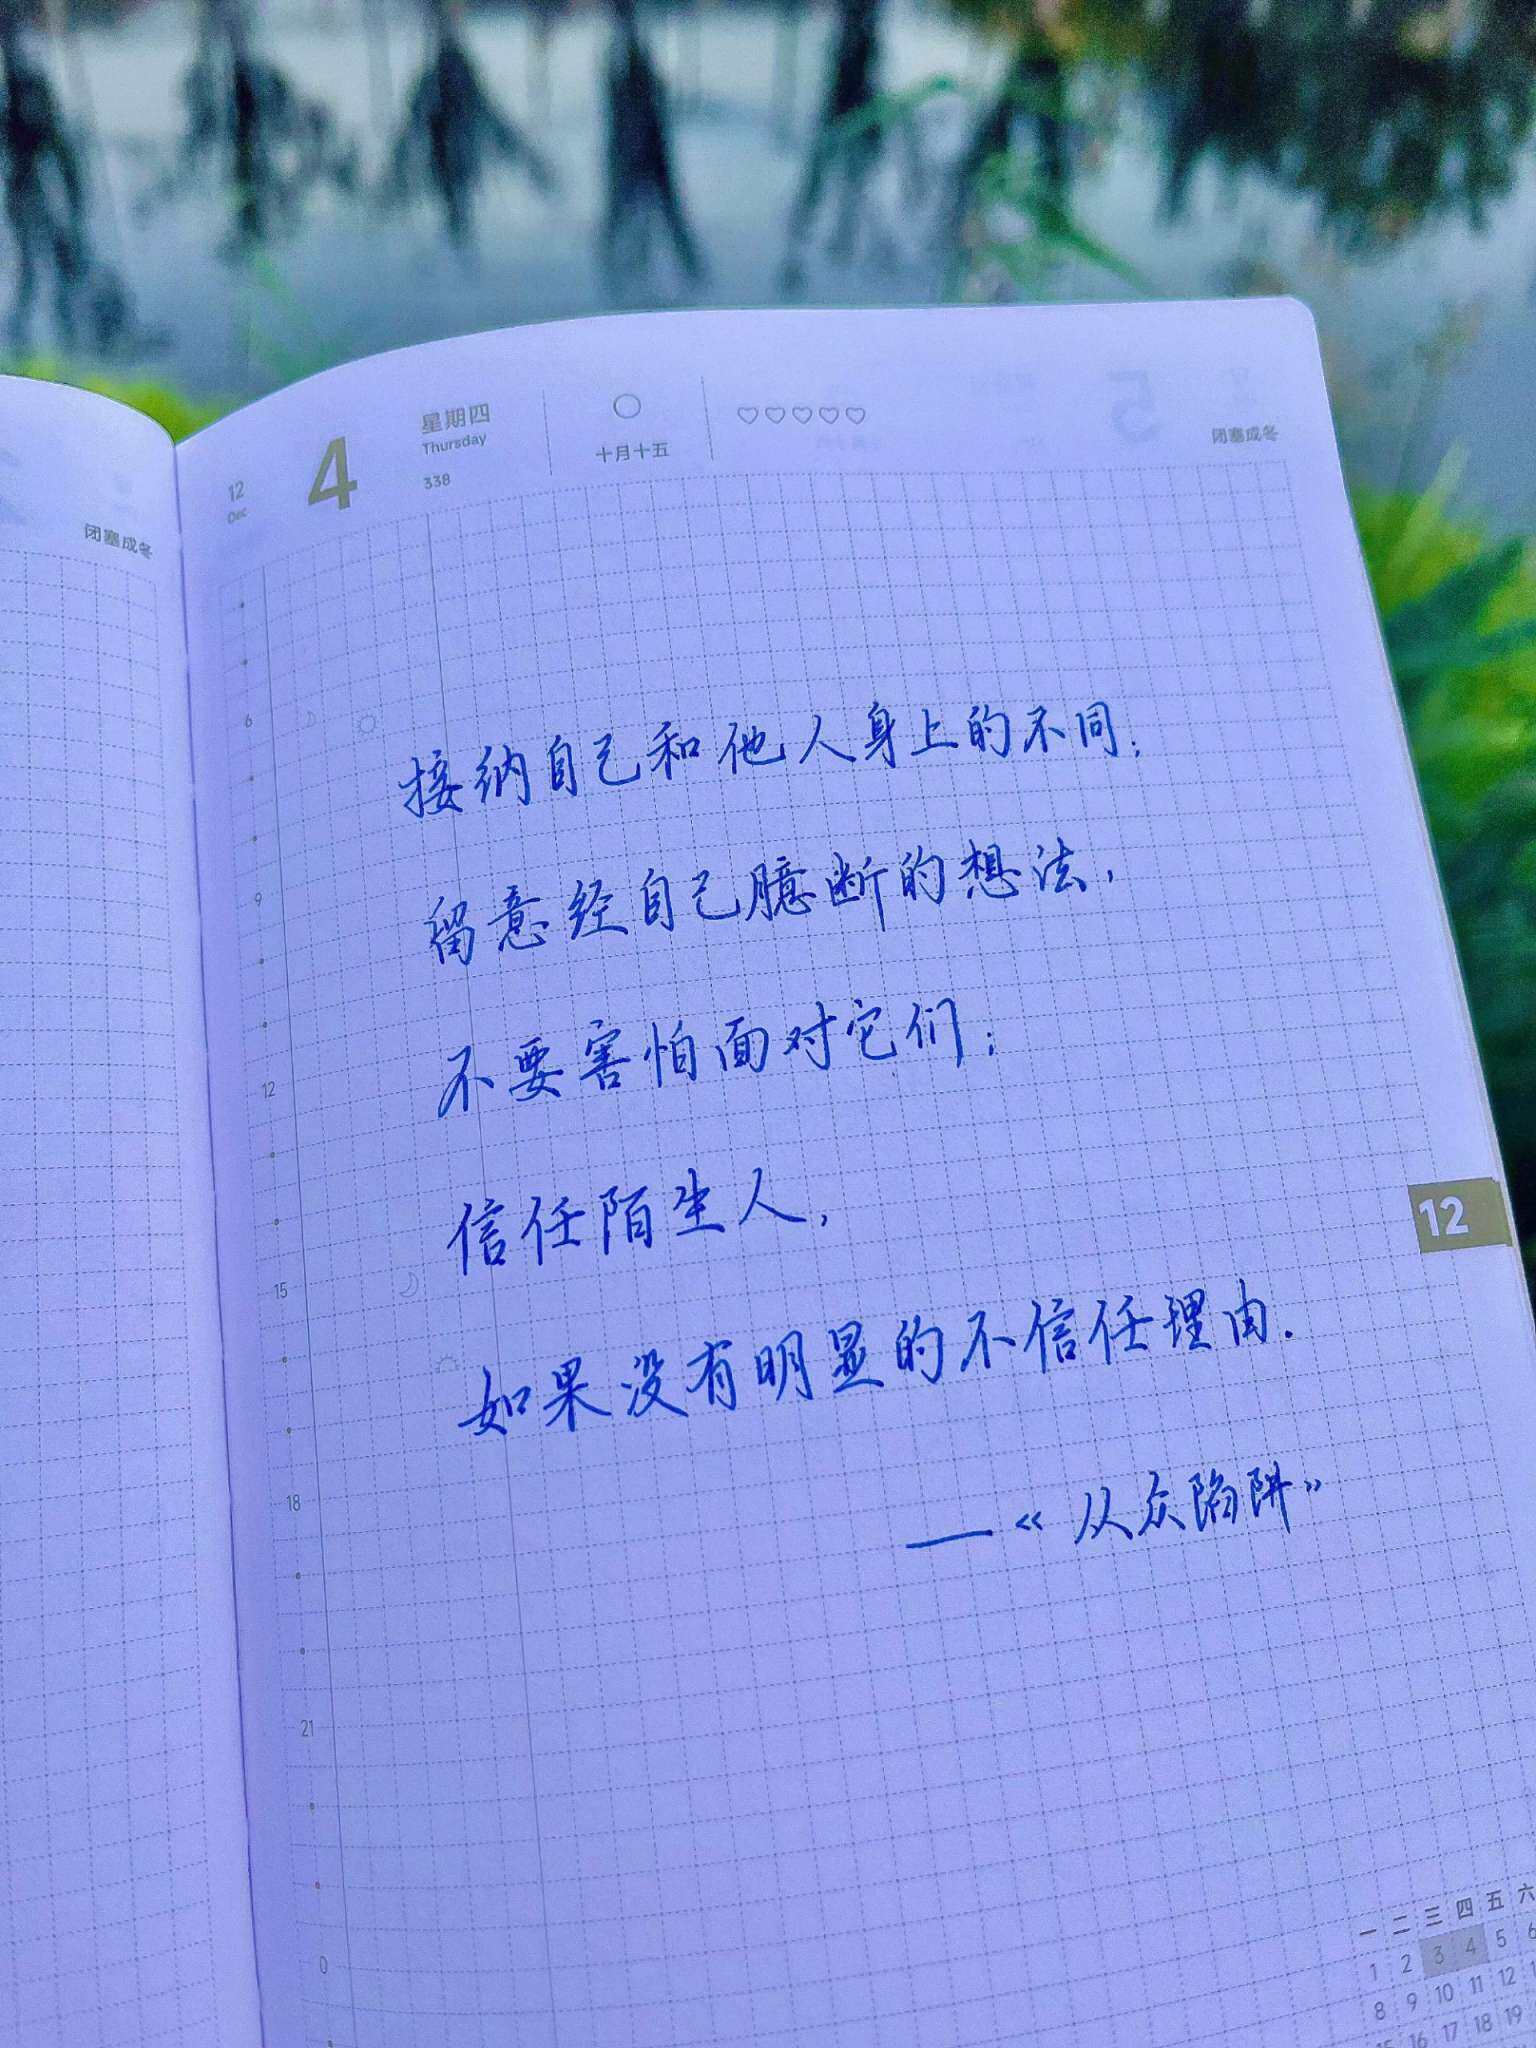 12
Dec
4
星期四
Thursday
338
十月十五
闭塞成冬
闭塞成冬
6
9
12
15
18
21
0
接纳自己和他人身上的不同；
留意经自己臆断的想法，
不要害怕面对它们；
信任陌生人，
如果没有明显的不信任理由.
——《从众陷阱》
12
一 二 三 四 五 六
1 2 3 4 5 6
8 9 10 11 12
16 17 18 19